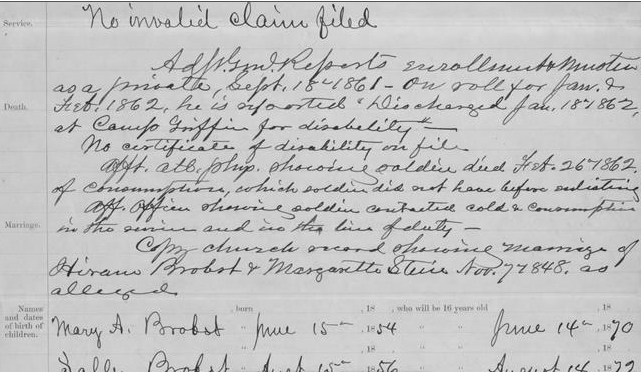 Service.
No invalid claim filed
Adjt. Genl. Reports enrollment & Muster
as a private, Sept. 18" 1861 - On roll for Jan. &
Death.
Feb. 1862, he is reported "Discharged Jan. 18" 1862,
at Camp Griffin for disability" -
No certificate of disability on file
Afft. att'd. phys. showing soldier died Feb. 26" 1862,
of consumption, which soldier did not have before enlisting
Aff. Officer showing soldier contracted cold & consumption
Marriage.
in the service and in the line of duty -
Copy church record showing marriage of
Hiram Brobst & Margarette Stein Nov. 7" 1848. as
alleged
Names and dates of birth of children.
born , 18 , who will be 16 years old , 18
Mary A. Brobst " June 15th 1854 " " June 14th 1870
" , 18 " " , 18
Brobst " Augt 15th 1856 " " August 14 1872